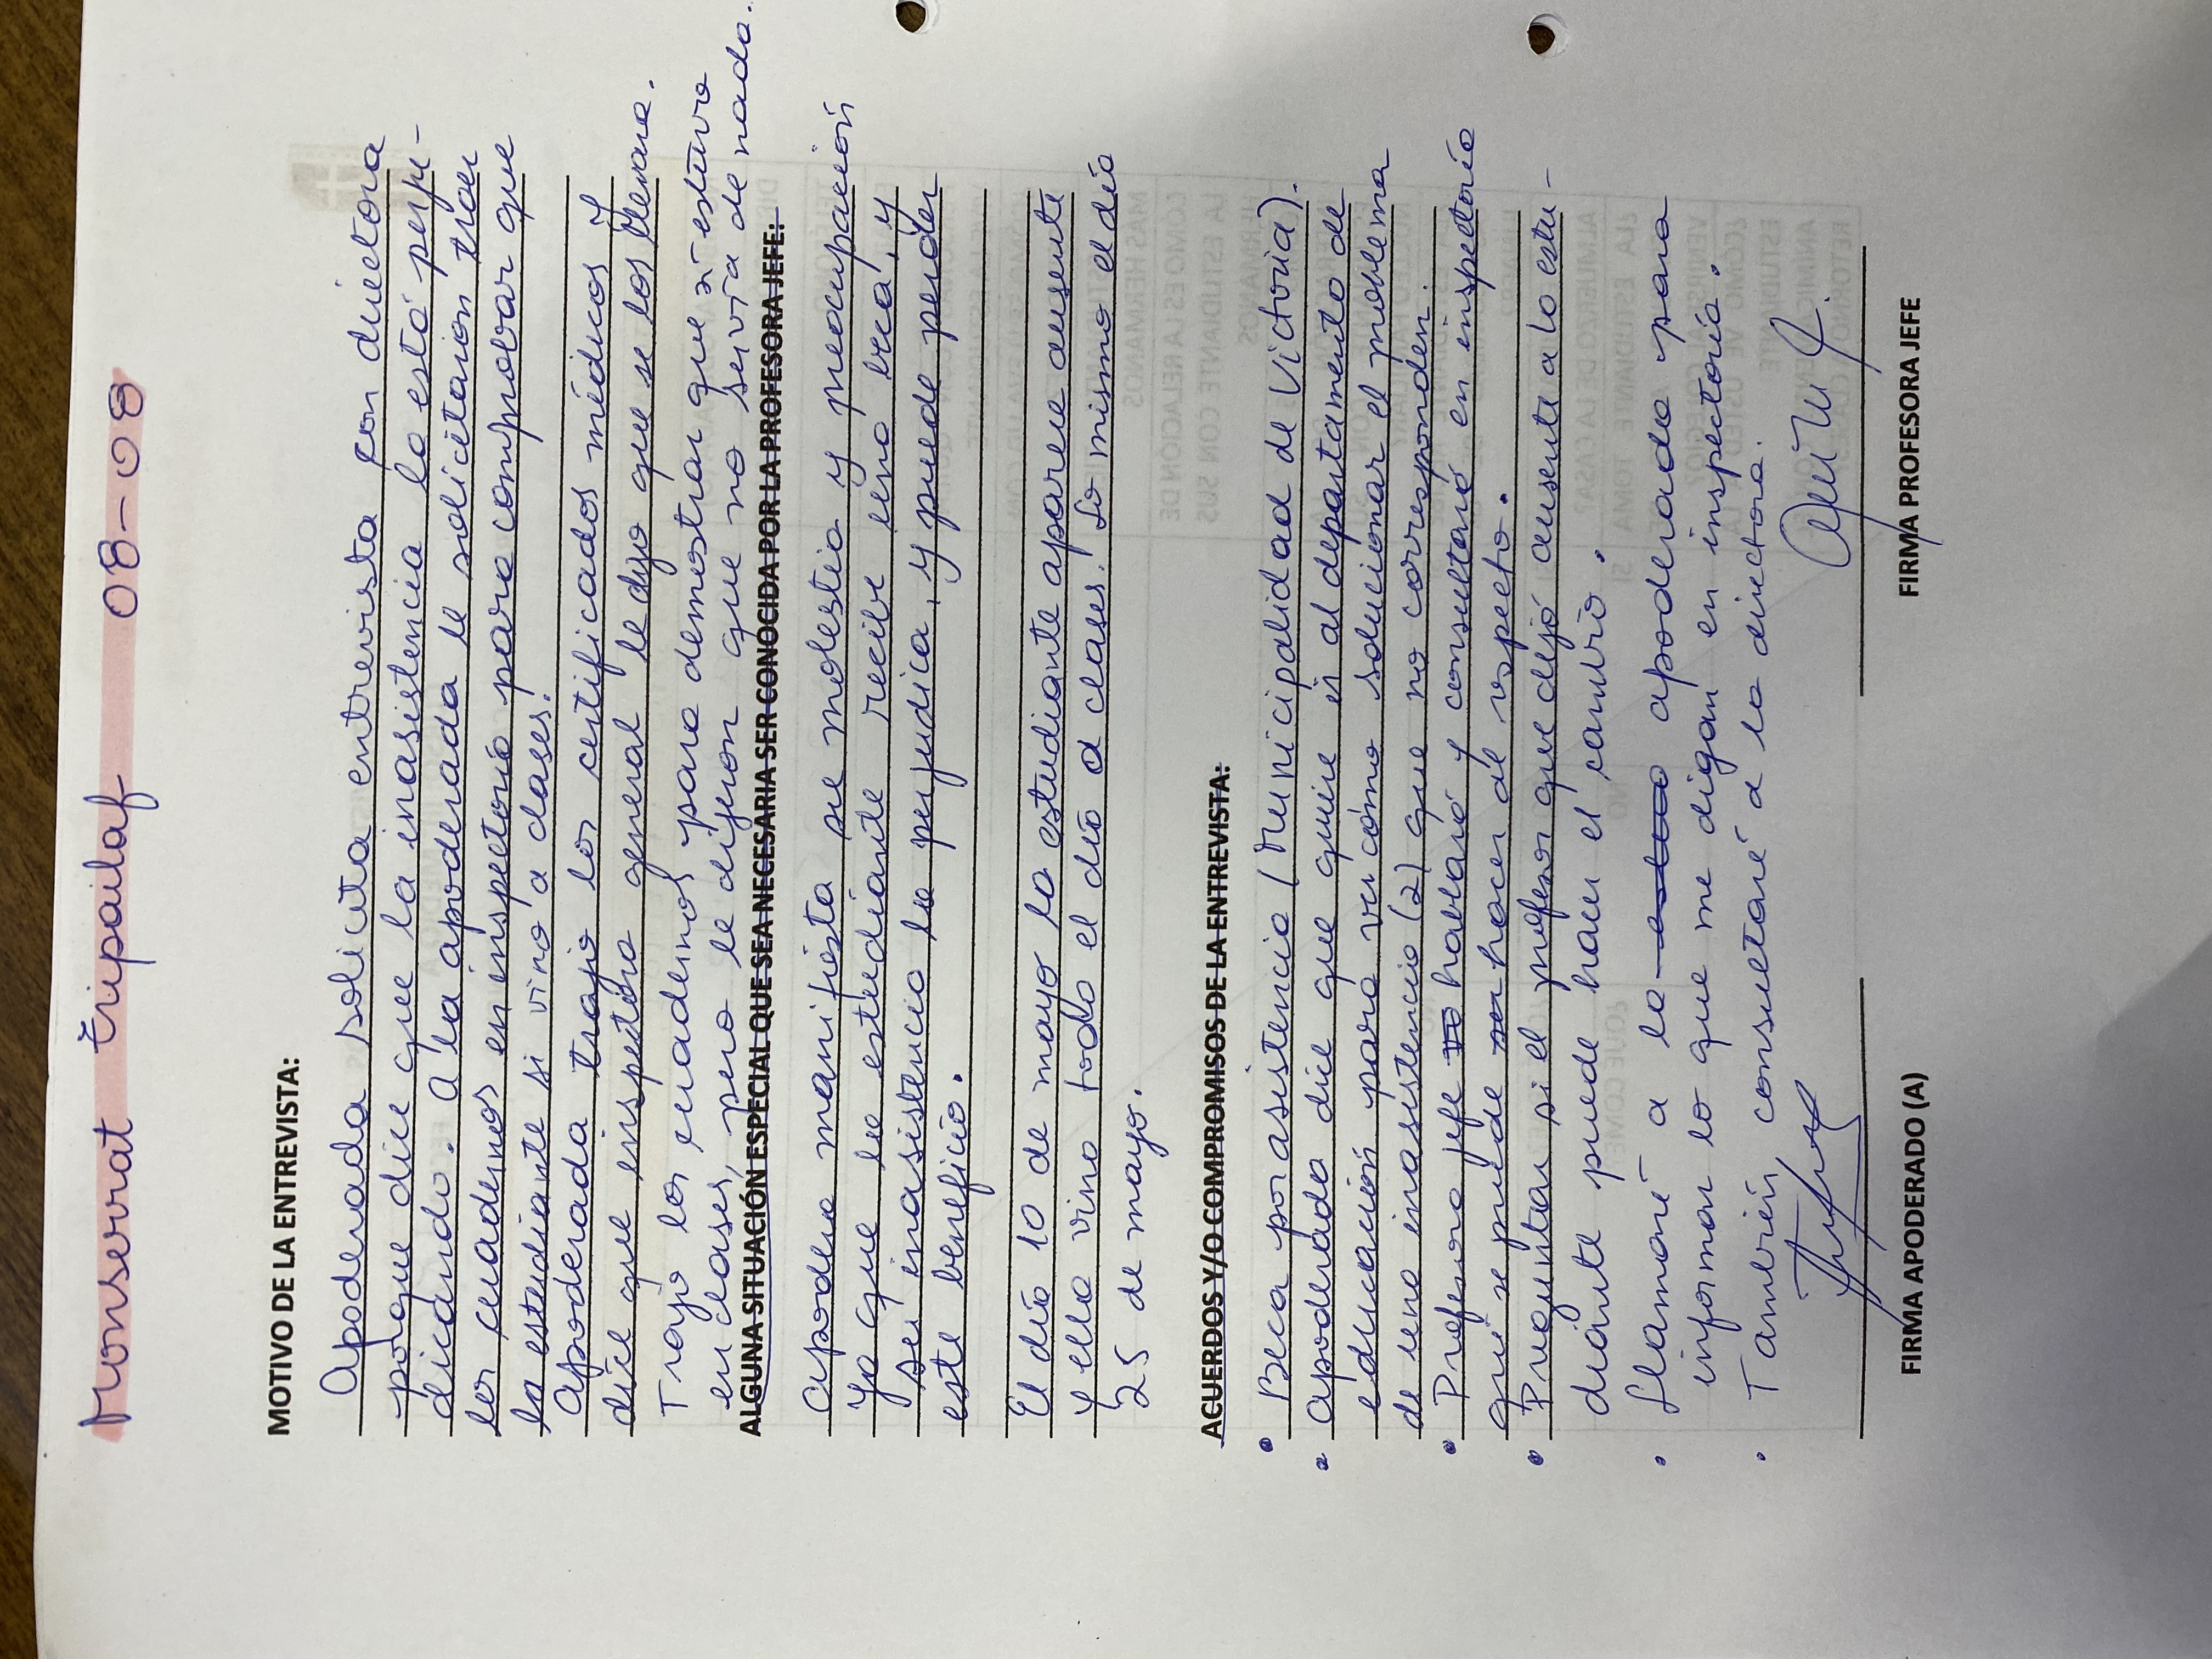 Monserrat Tripailaf 08-08
MOTIVO DE LA ENTREVISTA:
Apoderada solicita entrevista con directora
porque dice que la inasistencia la está perju-
dicando. A la apoderada le solicitaron traer
los cuadernos en inspectoría para comprobar que
la estudiante si vino a clases.
Apoderada trajo los certificados médicos y
dice que inspectora general le dijo que se los llevara.
Trajo los cuadernos para demostrar que sí estuvo
en clases, pero le dijeron que no servía de nada.
ALGUNA SITUACIÓN ESPECIAL QUE SEA NECESARIA SER CONOCIDA POR LA PROFESORA JEFE:
Apodera manifiesta su molestia y preocupación
ya que la estudiante recibe una beca, y
su inasistencia la perjudica, y puede perder
este beneficio.
El día 10 de mayo la estudiante aparece ausente
y ella vino todo el día a clases. Lo mismo el día
25 de mayo.
ACUERDOS Y/O COMPROMISOS DE LA ENTREVISTA:
• Beca por asistencia (Municipalidad de Victoria).
• Apoderada dice que quiere ir al departamento de
educación para ver cómo solucionar el problema
de una inasistencia (2) que no corresponden.
• Profesora jefe hablará y consultará en inspectoría
qué se puede hacer al respecto.
• Preguntar si el profesor que dejó ausente a la estu-
diante puede hacer el cambio.
• Llamaré a la apoderada para
informar lo que me digan en inspectoría.
• También consultaré a la directora.
FIRMA APODERADO (A) FIRMA PROFESORA JEFE